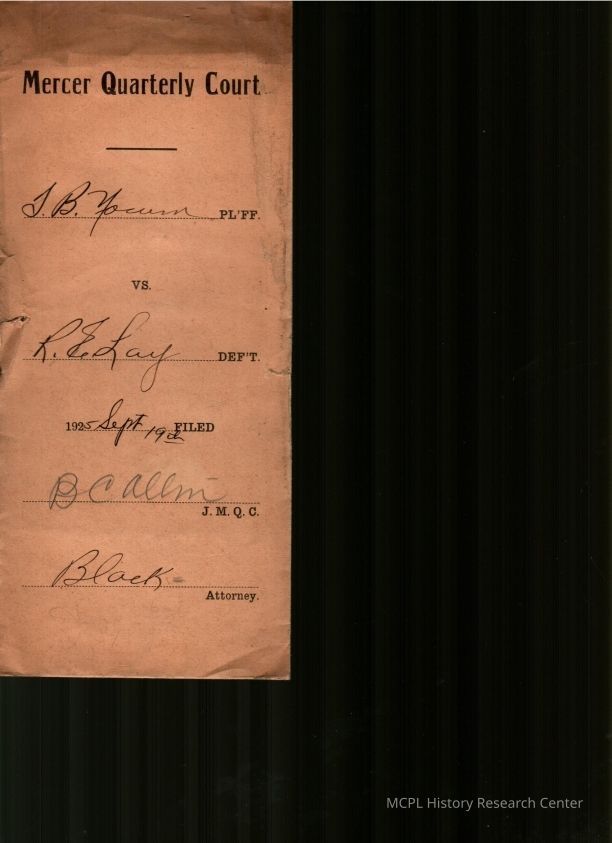 Mercer Quarterly Court
J. B. Yocum PL'FF.
VS.
R. E. Lay DEF'T.
1925 Sept 19th FILED
B C Allin
J. M. Q. C.
Black
Attorney.
MCPL History Research Center